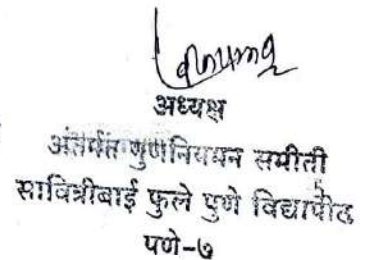 अध्यक्ष
अंतर्गत गुणनियमन समीती
सावित्रीबाई फुले पुणे विद्यापीठ
पणे-७